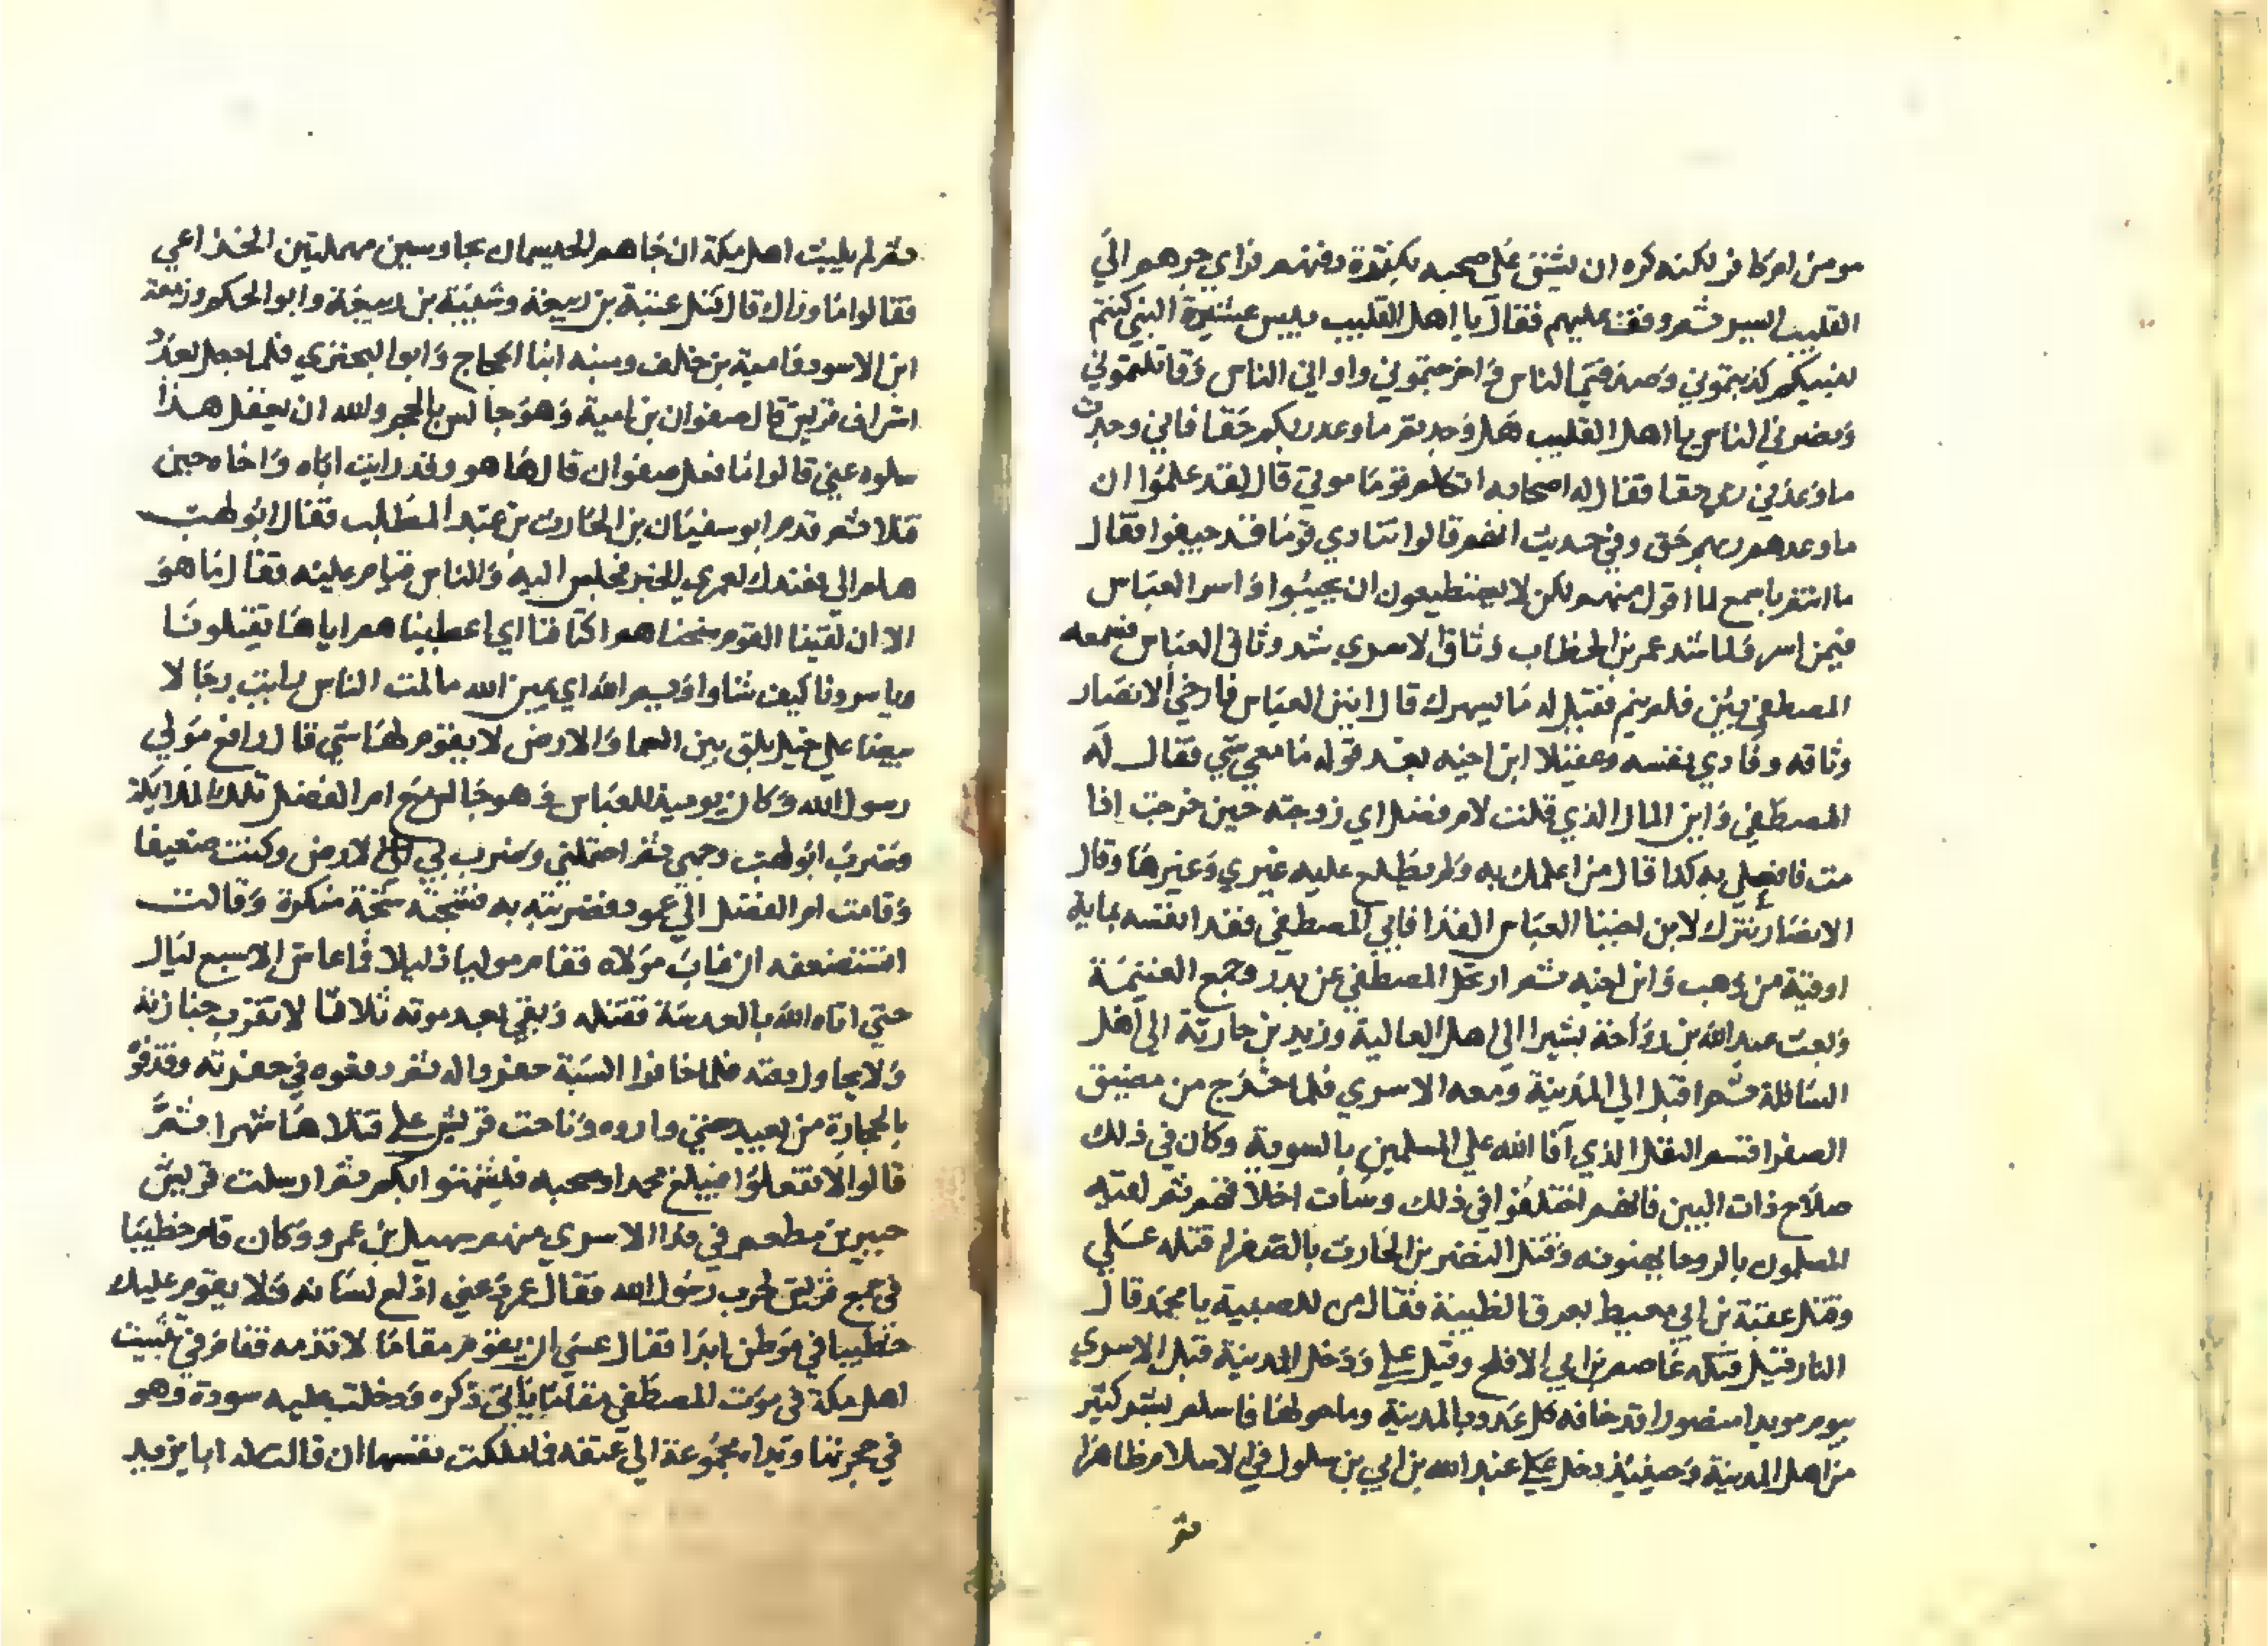 مومن ام كافر لكنه كره ان يشق علي صحبه لكثرة دفنهم فراي جرهم الي
القليب ايسر ثم وقف عليهم فقال يا اهل القليب بيس عشيرة النبي كنتم
لنبيكم كذبتموني وصدقني الناس واخرجتموني واواني الناس وقاتلتموني
ونصرني الناس يا اهل القليب هل وجدتم ما وعد ربكم حقا فاني وجدت
ما وعدني ربي حقا فقال له اصحابه اتكلم قوما موتي قال لقد علموا ان
ما وعدهم ربهم حق وفي حديث انهم قالوا تنادي قوما قد جيفوا فقال
ما انتم باسمع لما اقول منهم لكن لا يستطيعون ان يجيبوا واسر العباس
فيمن اسر ولما شد عمر بن الخطاب وثاق الاسري شد وثاق العباس فسمعه
المصطفي يئن فلم ينم فقيل له ما يسهرك قال انين العباس فارخي الانصار
وثاقه وفادي نفسه وعقيلا ابن اخيه بعد قوله ما معي شي فقال له
المصطفي واين المال الذي قلت لام فضل اي زوجته حين خرجت اذا
مت فافعلي به كذا قال من اعلمك به ولم يطلع عليه غيري وغيرها وقال
الانصار نترك لابن اختنا العباس الفدا فابي المصطفي ففدا نفسه بماية
اوقية من ذهب وابن اخيه ثم ارتحل المصطفي عن بدر وجمع الغنيمة
وبعث عبد الله بن رواحة بشيرا الي اهل العالية وزيد بن حارثة الي اهل
السافلة ثم اقبل الي المدينة ومعه الاسري فلما خرج من مضيق
الصفرا قسم النفل الذي آفا الله علي المسلمين بالسوية وكان في ذلك
صلاح ذات البين فانهم اختلفوا في ذلك وسأت اخلاقهم ثم لقيه
المسلمون بالروحا يهنونه وقتل النضر بن الحارث بالصفرا قتله علي
وقتل عقبة بن ابي معيط بعرق الظبية فقال من للصبية يا محمد قال
النار قتيل قتله عاصم بن ابي الافلح وقيل علي ودخل المدينة قبل الاسري
بيوم مويدا منصورا قد خافه كل عدو بالمدينة وما حولها فاسلم بشر كثير
من اهل المدينة وحينئذ دخل عبد الله بن ابي بن سلول في الاسلام ظاهرا
ثم
ثم لم يلبث اهل مكة ان جاهم الحيسمان بحا وسين مهملتين الخزاعي
فقالوا ما وراك قال قتل عتبة بن ربيعة وشيبة بن ربيعة وابو الحكم وزمعة
ابن الاسود وامية بن خلف ومنبه ابنا الحجاج وابو البحتري فلما جعل يعدد
اشراف قريش قال صفوان بن امية وهو جالس بالحجر والله ان يعقل هذا
سلوه عني قالوا ما فعل صفوان قال ها هو وقد رايت اباه واخاه حين
قتلا ثم قدم ابو سفيان بن الحارث بن عبد المطلب فقال ابو لهب
هلم الي فعندك لعمري الخبر فجلس اليه والناس قيام عليه فقال ما هو
الا ان لقينا القوم منحناهم اكتافنا اي اعطيناهم اياها يقتلونا
وياسرونا كيف شاوا وبيم الله اي يمين الله ما لمت الناس رايت رجالا
بيضا علي خيل بلق بين السما والارض لا يقوم لها شي قال رافع مولي
رسول الله وكان يوميذ للعباس وهو جالس مع ام الفضل تلك الملايكة
فضرب ابو لهب وجهي ثم احتملني وضرب بي الي الارض وكنت ضعيفا
وقامت ام الفضل الي عمود فضربته به فشجته شجة منكرة وقالت
استضعفه ان غاب مولاه فقام موليا ذليلا فا عاش الا سبع ليال
حتي اتاه الله بالعدسة فقتله وبقي بعد موته ثلاثا لا تقرب جنازته
ولا يحاول دفنه فلما خافوا السبة حفروا له ثم دفعوه في حفرته وقذفوه
بالحجارة من بعيد حتي واروه وناحت قريش علي قتلاها شهرا ثم
قالوا لا تفعلوا فيبلغ محمدا وصحبه فيشمتوا بكم ثم ارسلت قريش
جبير بن مطعم في فدا الاسري منهم سهيل بن عمرو وكان قام خطيبا
في جمع قريش لحرب رسول الله فقال عمر دعني ادلع لسانه فلا يقوم عليك
خطيبا في موطن ابدا فقال عسي ان يقوم مقاما لا تذمه فقام في تثبيت
اهل مكة في موت المصطفي مقاما ياتي ذكره ودخلت عليه سودة وهو
في حجرتها ويداه مجموعة الي عنقه فما ملكت نفسها ان قالت له ابا يزيد